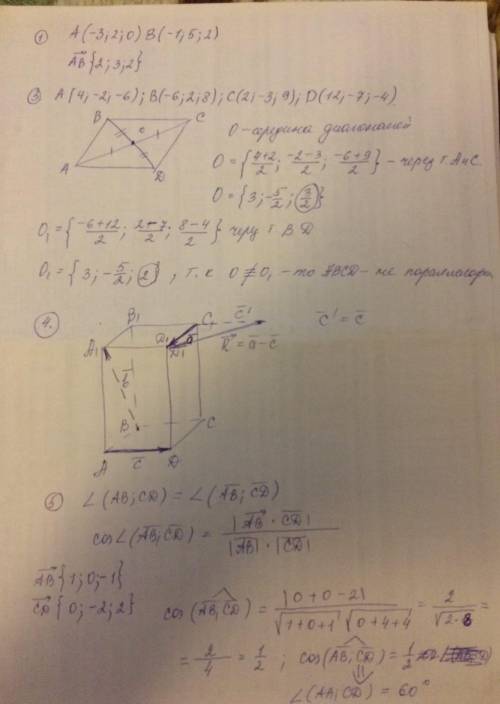 ① A(-3;2;0) B(-1;5;2)
AB{2;3;2}
③ A(4,-2,-6); B(-6;2;8); C(2;-3;9); D(12,-7;-4)
B C
о
A D
О-середина диагоналей
O = {4+2/2; -2-3/2; -6+9/2} - через т. A и C
O = {3; -5/2; 3/2}
O₁ = {-6+12/2; 2-7/2; 8-4/2} через т. B D
O₁ = {3; -5/2; 2}, т.к O ≠ O₁ - то ABCD - не
④. B₁ C₁ c̄'
c̄' = c̄
A₁ D₁ ā
R = ā - c̄
b̄
B C
A c̄ D
⑤ ∠(AB;CD) = ∠(AB; CD)
cos∠(AB;CD) = |AB · CD| / |AB| · |CD|
AB{1;0;-1}
CD{0;-2;2}
cos(AB;CD) = |0+0-2| / √1+0+1 √0+4+4 = 2/√2·8 =
= 2/4 = 1/2; cos(AB;CD) = 1/2
⇓
∠(AA;CD) = 60°